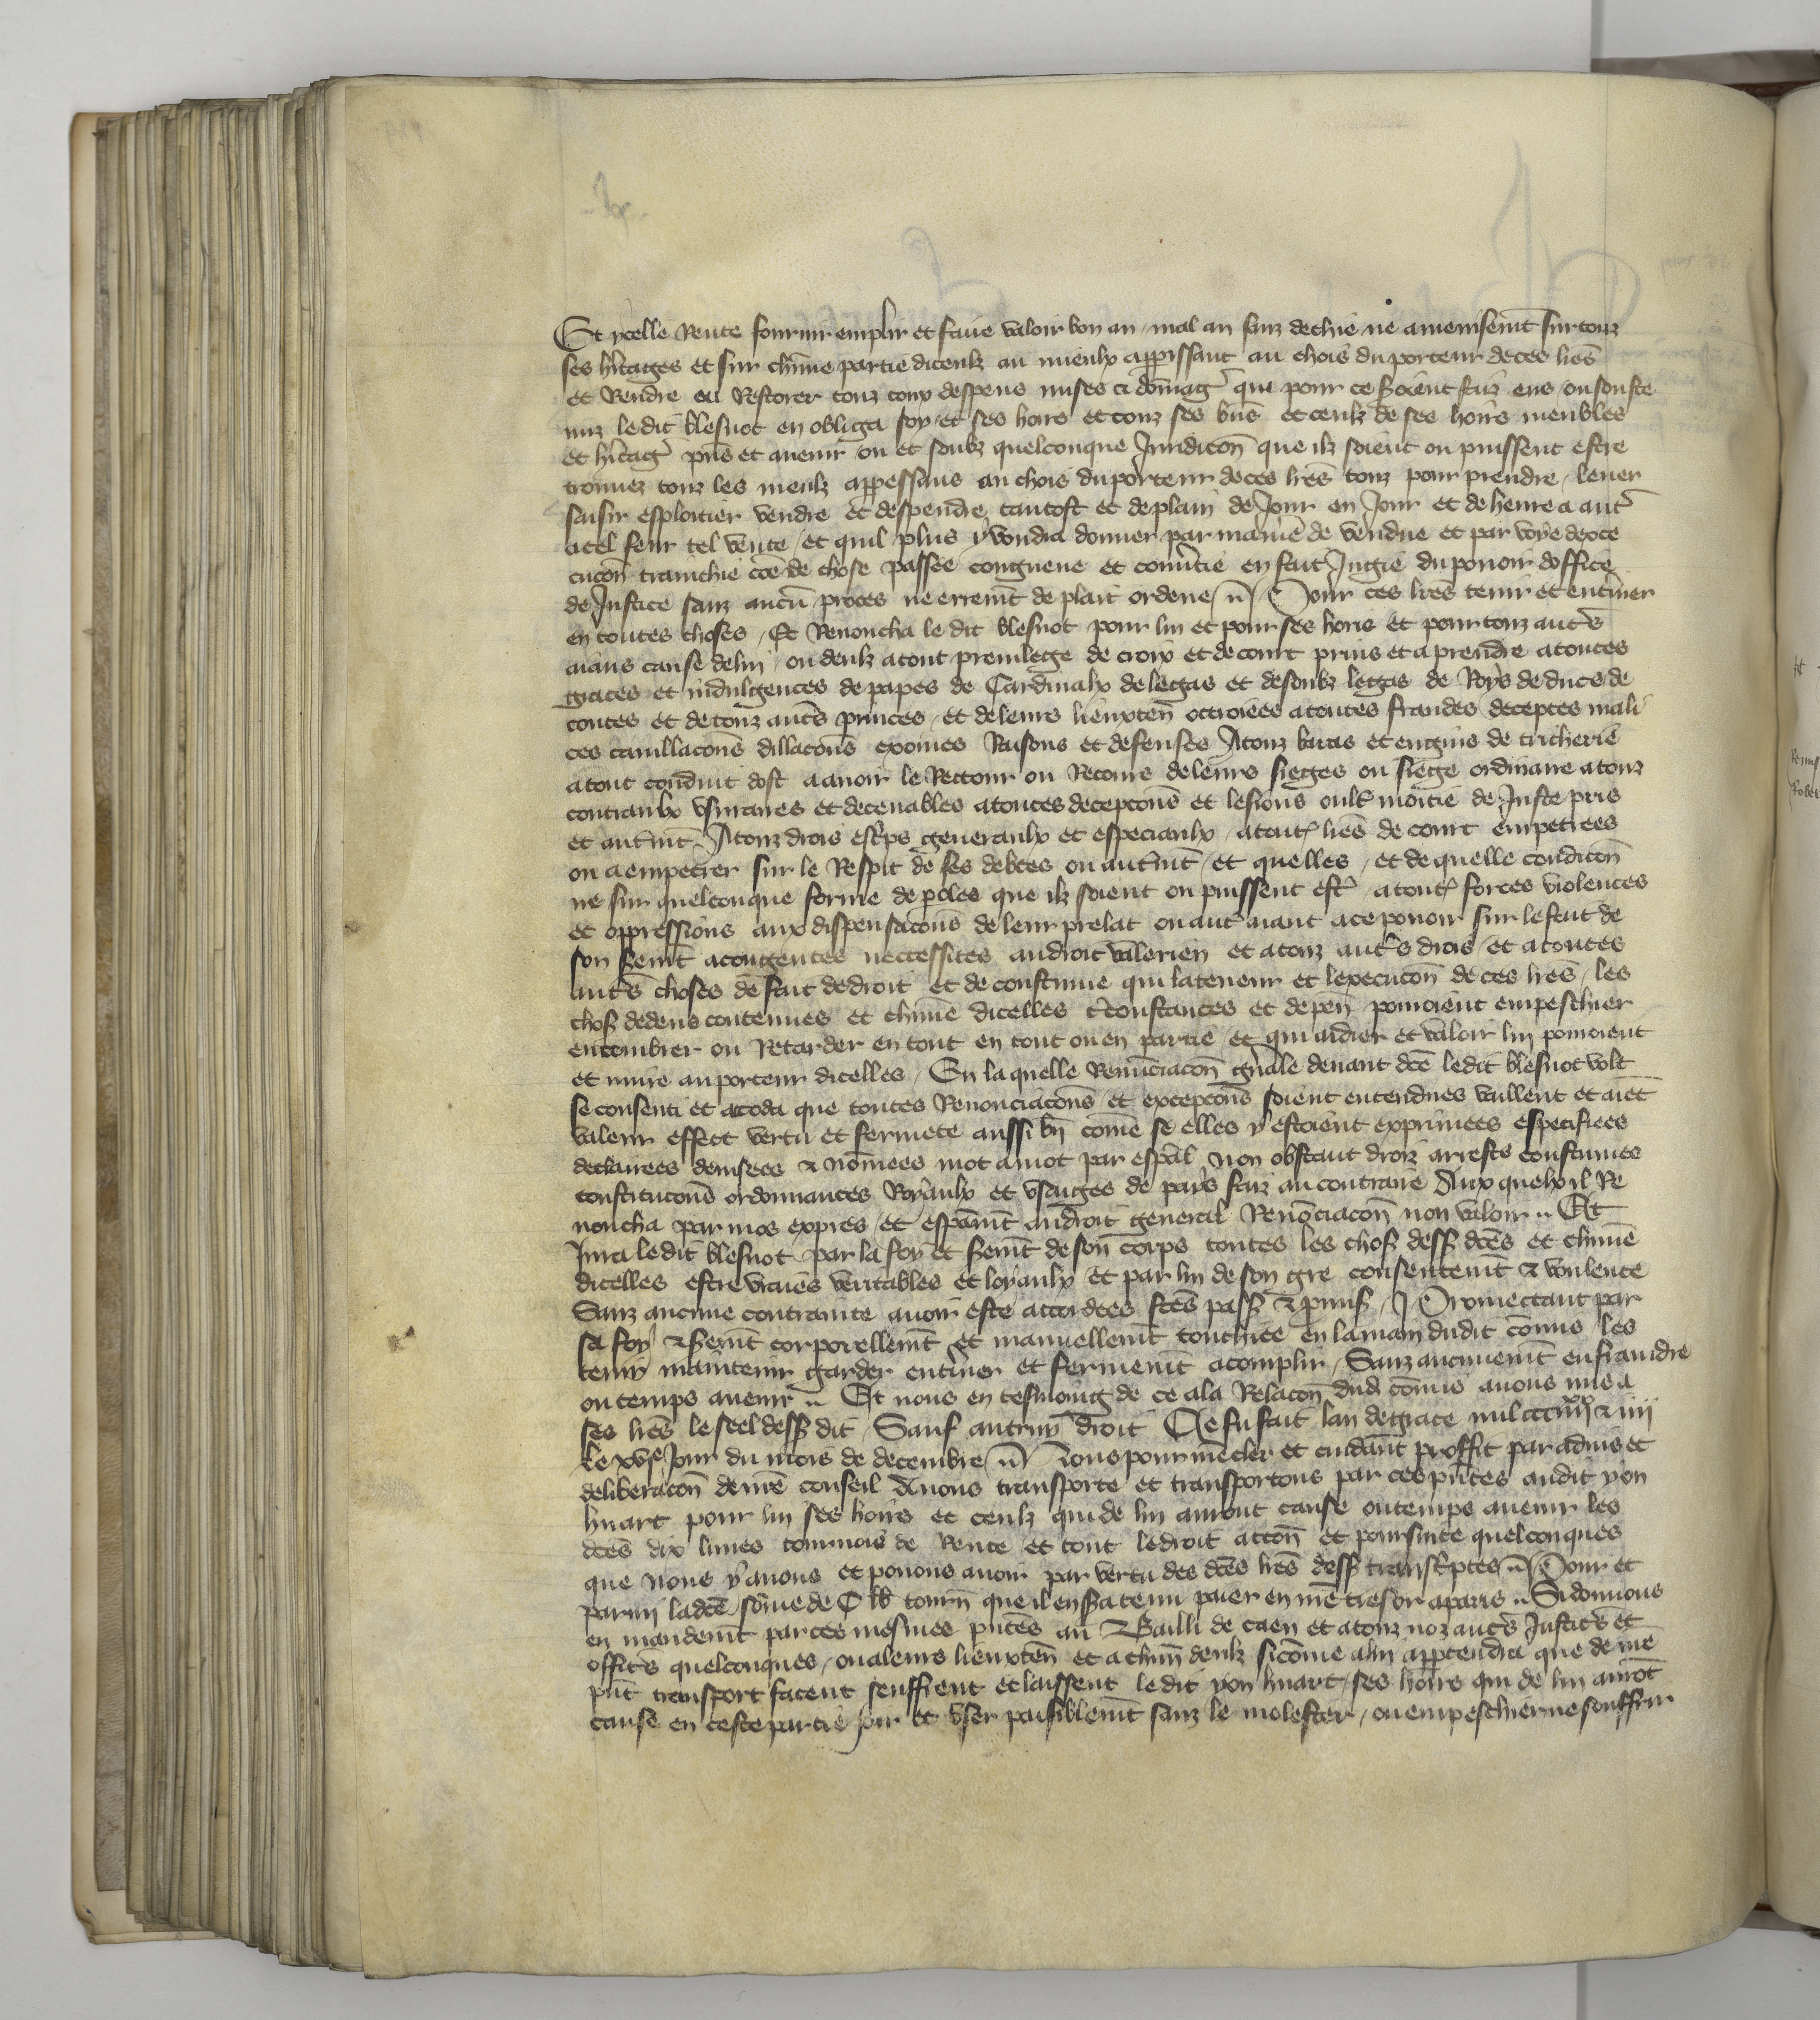 Et ycelle Rente fournir emplir et faire valoir bon an mal an sanz dechie ne amenisem̃t sur touz
ses h̃itages et sur ch̃une partie diceulx au mieulx apparissant au chois du porteur de ces lr̃es
et Rendre ou Restorer touz coux despens mises et dom̃ag̃ que pour ce seroient faiz eus ou souste
nuz le dit blesuot en obliga soy et ses hoirs et touz ses biẽs et ceulx de ses hoirs meubles
et h̃itag̃ pñs et auenir ou et soubz quelconque Juridicoñ que ilz soient ou puissent estre
trouuez touz les meulx apressans au chois du porteur de ces lr̃es touz pour prendre leuer
saisir esploitier vendre et despendre tantost et de plain de Jour en Jour et de heure a autr̃
a tel feur tel vente et quil plus y vondra donner par manier̃ de vendue et par voye dexce
cucoñ tranchie com̃e de chose passee congneue et conuertie en fait Jugie du pouoir doffice
de Justice sanz aucũ proces ne errem̃t de plait ordene Pour ces lr̃es tenir et ent̃iner
en toutes choses Et Renoncha le dit blesuot pour lui et pour ses hoirs et pour touz autr̃s
aians cause de lui ou deulx a tout preuilege de croix et de court prins et a prendre a toutes
graces et indulgences de papes de Cardinalx de legas et de soubz legas de Roys de ducs de
contes et de touz autr̃s princes et de leurs lieuxteñ ottroiees a toutes fraudes deceptes mali
ces cauillacoñs dillacoñs exoines Raisons et defenses A touz baras et engins de tricherie
a tout conduit dost a auoir le Rettour ou Recours de leurs sieges ou siege ordinaire a touz
contraulx vsuraires et deceuables a toutes decepcoñs et lesions oultr̃ moitie de Juste pris
et autrem̃t A touz drois esc̃ps generaulx et especiaulx a tout̃ lr̃es de court empetrees
ou a empetrer sur le Respit de ses debtes ou autrem̃t et quelles et de quelle condicoñ
ne sur quelconque forme de p̃oles que ilz soient ou puissent estr̃ a tout̃ forces violences
et oppressions aux dispensacoñs de leur prelat ou autr̃ aiant a ce pouoir sur le fait de
son serem̃t a contgentes neccessites au droit valerien et a touz autr̃s drois et a toutes
autr̃s choses de fait de droit et de coustume qui la teneur et lexecucoñ de ces lr̃es les
choß dedens contenues et ch̃une dicelles circonstances et depeñ pourroient empeschier
encombrer ou Retarder en tout en tout ou en partie et qui aidier et valoir lui pourroient
et nuire au porteur dicelles En la quelle Renunciacoñ gñale deuant dc̃e ledit blesuot volt
se consenti et acorda que toutes Renonciacoñs et excepcoñs soient entendues vaillent et aiẽt
valeur effect vertu et fermete aussi biñ com̃e se elles y estoient exprimees especifiees
declairees deuisees & nom̃ees mot a mot par esp̃al non obstant droiz arrests coustumes
constitucoñs ordonnances Royaulx et vsaiges de pays faiz au contraire Aux quelx il Re
noncha par mos expres et espãm̃t au droit general Renonciacoñ non valoir Et
Jura ledit blesuot par la foy et serem̃t de son corps toutes les choß desß dc̃es et ch̃une
dicelles estre vraies veritables et loyaulx et par lui de son gre consentem̃t & voulente
Sanz aucune contrainte auoir este accordees fc̃es passß & pmisß Promectant par
sa foy & serem̃t corporellem̃t et manuellem̃t touchiee en la main dudit com̃is les
tenir maintenir garder ent̃iner et fermem̃t acomplir Sanz aucunem̃t enfraindre
ou temps auenir Et nous en tesmoing de ce a la Relacoñ dud com̃is auons mis a
ses lr̃es le seel desß dit Sauf autruy droit Ce fu fait lan de grace mil CCC iiiixx & iiii
Le xve Jour du mois de decembre Nous pour nr̃e cler et euidant proffit par aduis et
deliberacoñ de nr̃e conseil Auons transporte et transportons par ces pñtes audit yon
huart pour lui ses hoirs et ceulx qui de lui auront cause ou temps auenir les
dc̃es dix liures tournois de Rente et tout le droit acc̃oñ et poursuite quelconques
que nous y auons et pouons auoir par vertu des dc̃es lr̃es desß transc̃ptes Pour et
parmi ladc̃e som̃e de C lb tourñ que il en sera tenu paier en nr̃e tresor a paris Si donnons
en mandem̃t par ces mesmes pñtes au Bailli de caen et a touz noz autr̃s Justic̃s et
offic̃s quelconques ou a leurs lieuxteñ et a ch̃un deulx sicom̃e a lui appartendra que de nr̃e
pñt transport facent seuffrent et laissent le dit yon huart ses hoirs qui de lui aurõt
cause en ceste partie Joir et vser paisiblem̃t sanz le molester ou empeschier ne souffrir